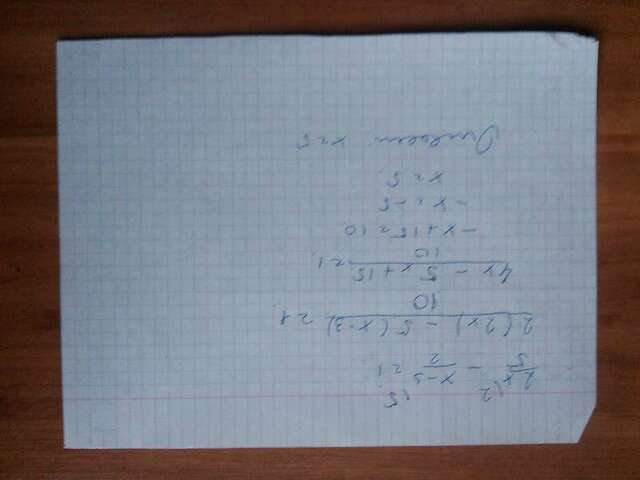 2x/5 \2 - x-3/2 \5 = 1
2(2x) - 5(x-3)/10 = 1
4x - 5x + 15/10 = 1
-x + 15 = 10
-x = -5
x = 5
x = 5